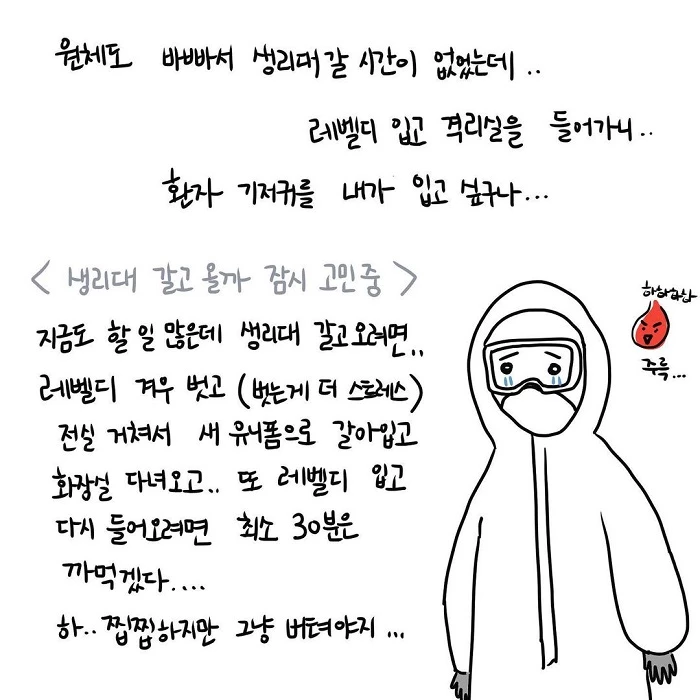 원체도 바빠서 생리대 갈 시간이 없었는데..
레벨디 입고 격리실을 들어가니..
환자 기저귀를 내가 입고 싶구나...
<생리대 갈고 올까 잠시 고민중>
하하하핳
지금도 할 일 많은데 생리대 갈고오려면..
주륵...
레벨디 겨우 벗고 (벗는게 더 스트레스)
전실 거쳐서 새 유니폼으로 갈아입고
화장실 다녀오고.. 또 레벨디 입고
다시 들어오려면 최소 30분은
까먹겠다....
하.. 찝찝하지만 그냥 버텨야지...